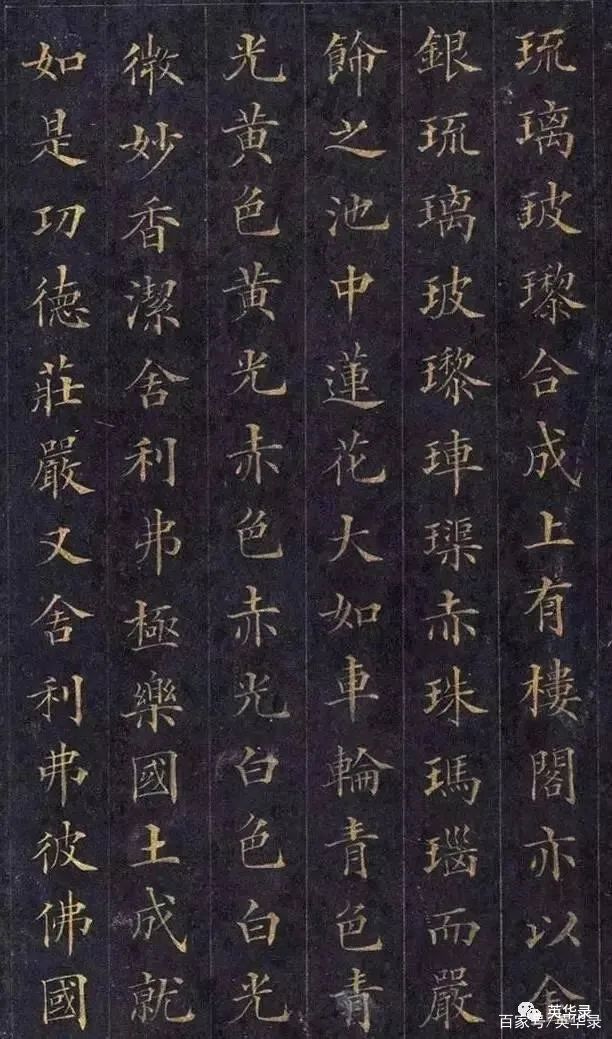 琉璃玻瓈合成上有樓閣亦以金
銀琉璃玻瓈硨磲赤珠瑪瑙而嚴
飾之池中蓮花大如車輪青色青
光黃色黃光赤色赤光白色白光
微妙香潔舍利弗極樂國土成就
如是功德莊嚴又舍利弗彼佛國
英华录
百家号/英华录